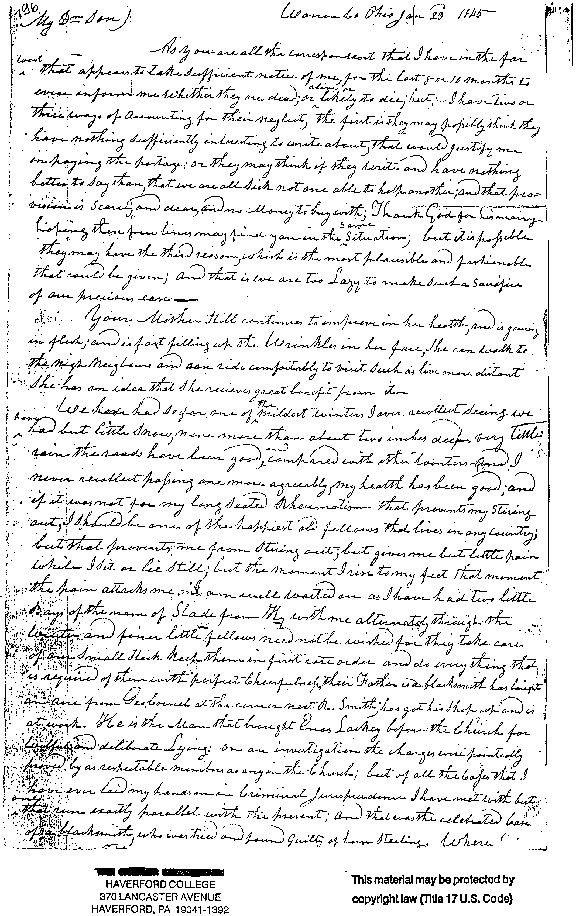 196
My Dr Son}
Ohio Jan 23 1845
As you are all the correspondent that I have in the far
West
that appears to take sufficient notice of me, for the last 8 or 10 months to
even inform me whether they are dead, or likely to die; but I have two or
three ways of accounting for their neglect, the first is they may possibly think they
have nothing sufficiently interesting to write about, that would justify me
in paying the postage; or they may think if they write and have nothing
better to say than, that we are all sick not one able to help another, and that pro-
vision is scarce, and dear, and no Money to buy with, Thank God for his mercy
hoping these few lines may find you in the Same Situation; but it is possible
they may have the third reason, which is the most plausible and fashionable
that could be given; and that is we are too Lazy to make such a sacrifice
of our precious ease —
Your Mother Hill continues to improve in her health, and is gaining
in flesh, and is fast filling up the Wrinkles in her face, She can walk to
the nigh Neighbours and can ride comfortably to visit such as live more distant
She has an idea that she recieves great benefit from it
We have had so far one of the mildest winters I ever recollect seeing we
have
had but little Snow, none more than about two inches deep, very little
rain the roads have been good, compared with other winters and I
never recollect passing one more agreeably, my health has been good, and
if it was not for my long seated Rheumatism that prevents my stiring
out, I should be one of the happiest old fellows that lives in any country;
but that prevents me from stiring out; but gives me but little pain
while I sit or lie still; but the moment I rise to my feet that moment
the pain attacks me. I am well waited on as I have had two little
Boys of the name of Slade from with me alternately through the
Winter and finer little fellows need not be wished for they take care
of our Small Stock keep them in first rate order and do everything that
is required of them with perfect Cheerfulness, their Father is a blacksmith has bought
an acre from at the corner next R. Smith, has got his Shop up and is
at work. He is the Man that brought Enos Lackey before the Church for
and deliberate Lying on an investigation the charges were pointedly
proved by as respectable members as any in the Church; but of all the Cases that I
have ever laid my hands on in Criminal Jurisprudence I have met with but
one
that runs exactly parallel with the present; And that was the celebrated case
of a blacksmith, who was tried and found Guilty of horse Stealing. Where
HAVERFORD COLLEGE
370 LANCASTER AVENUE
HAVERFORD, PA 19041-1392
This material may be protected by
copyright law (Title 17 U.S. Code)